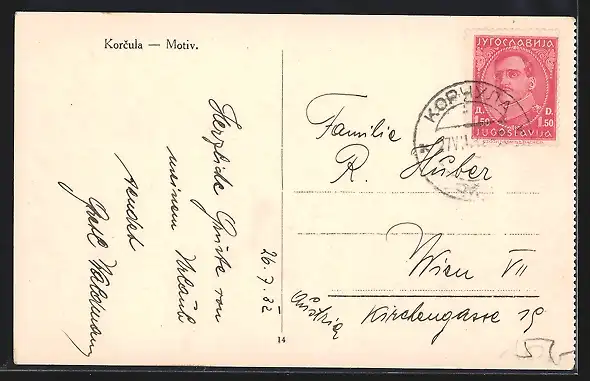 Korčula — Motiv.
Herzliche Grüße von
meinem Urlaub
sendet
26. 7. 32
14
ЈУГОСЛАВИЈА
Д. D.
1.50 1.50
JUGOSLAVIJA
КОРЧУЛА
Familie
R. Huber
Wien VII
Kirchengasse 19
Austria